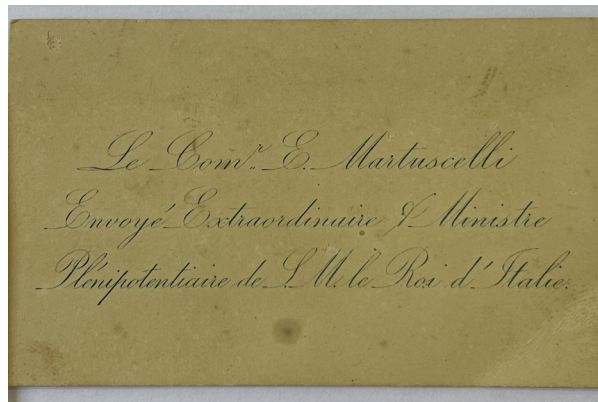 Le Comr. E. Martuscelli
Envoyé Extraordinaire & Ministre
Plénipotentiaire de S. M. le Roi d'Italie.